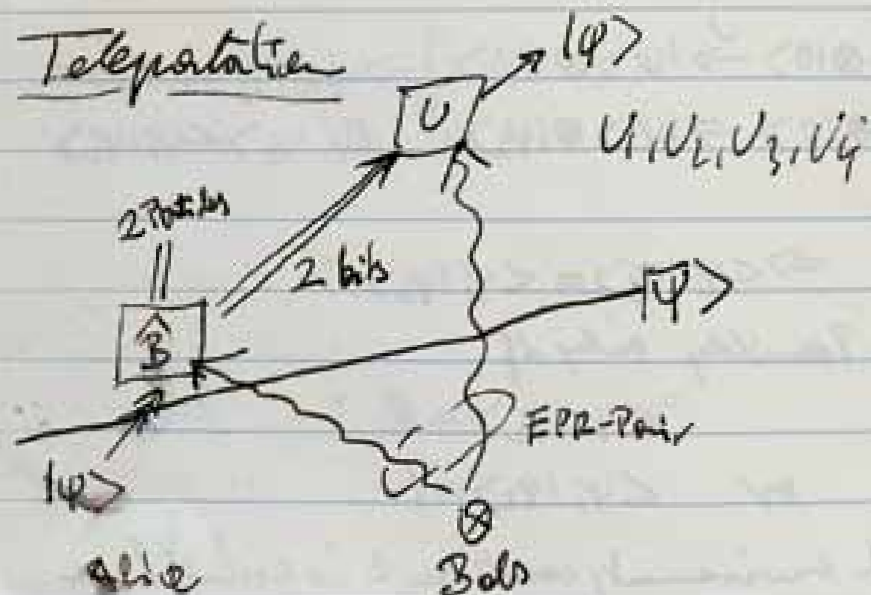 Teleportation
|ψ>
U
U1, U2, U3, U4
2 Particles
2 bits
B̂
|Ψ>
EPR-Pair
|φ>
Alice
Bob